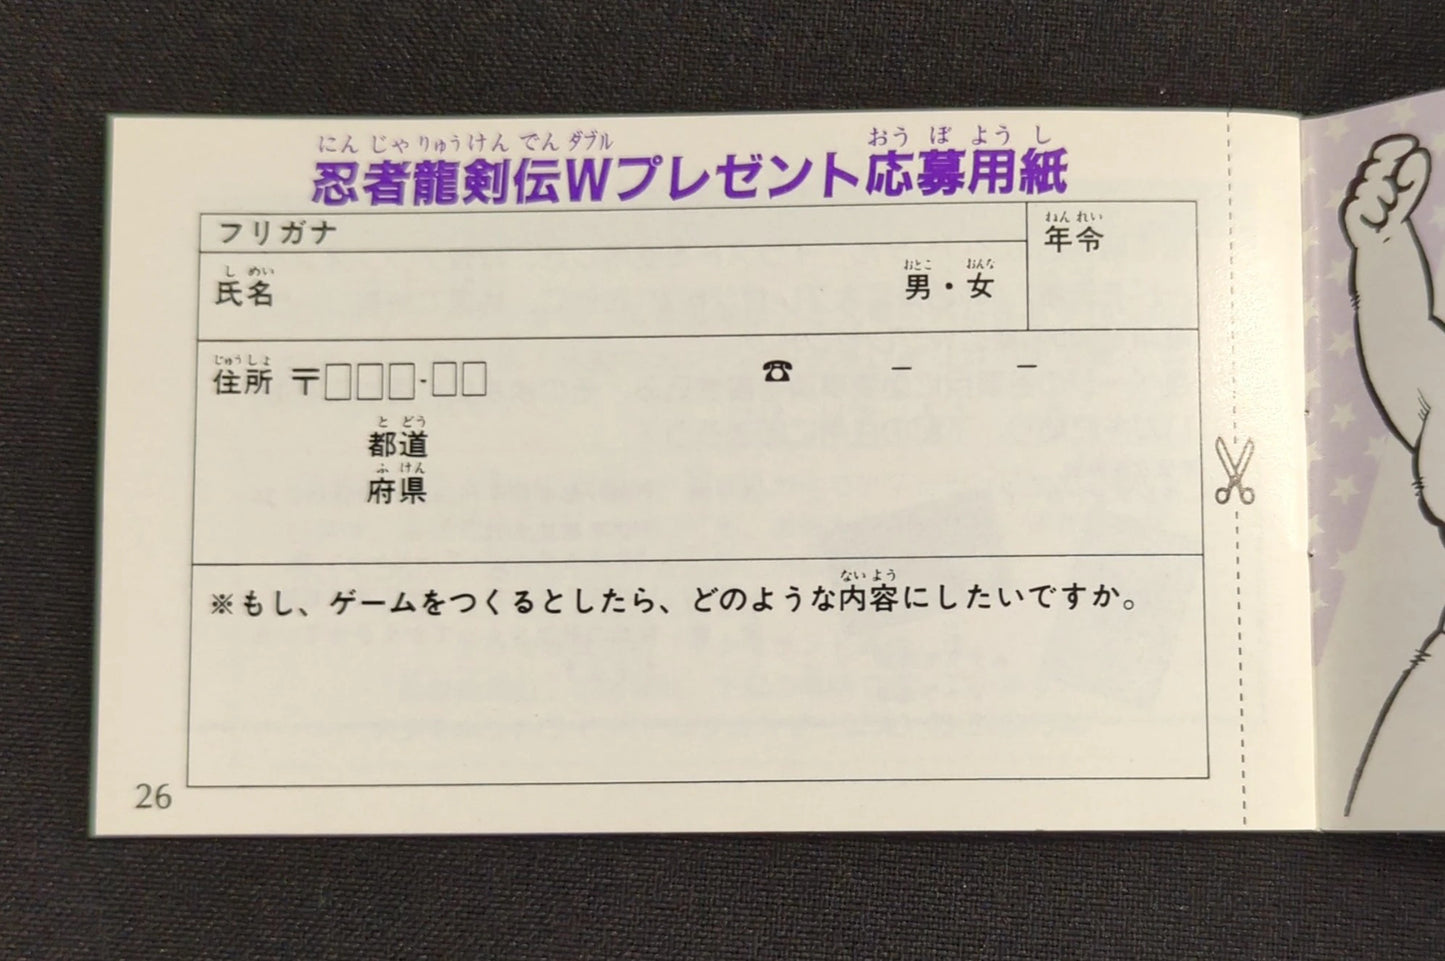 にんじゃりゅうけんでんダブル おうぼようし
忍者龍剣伝Wプレゼント応募用紙
フリガナ
ねんれい
年令
しめい
氏名
おとこ おんな
男・女
じゅうしょ
住所 〒□□□-□□ ☎ － －
とどう
都道
ふけん
府県
ないよう
※もし、ゲームをつくるとしたら、どのような内容にしたいですか。
26